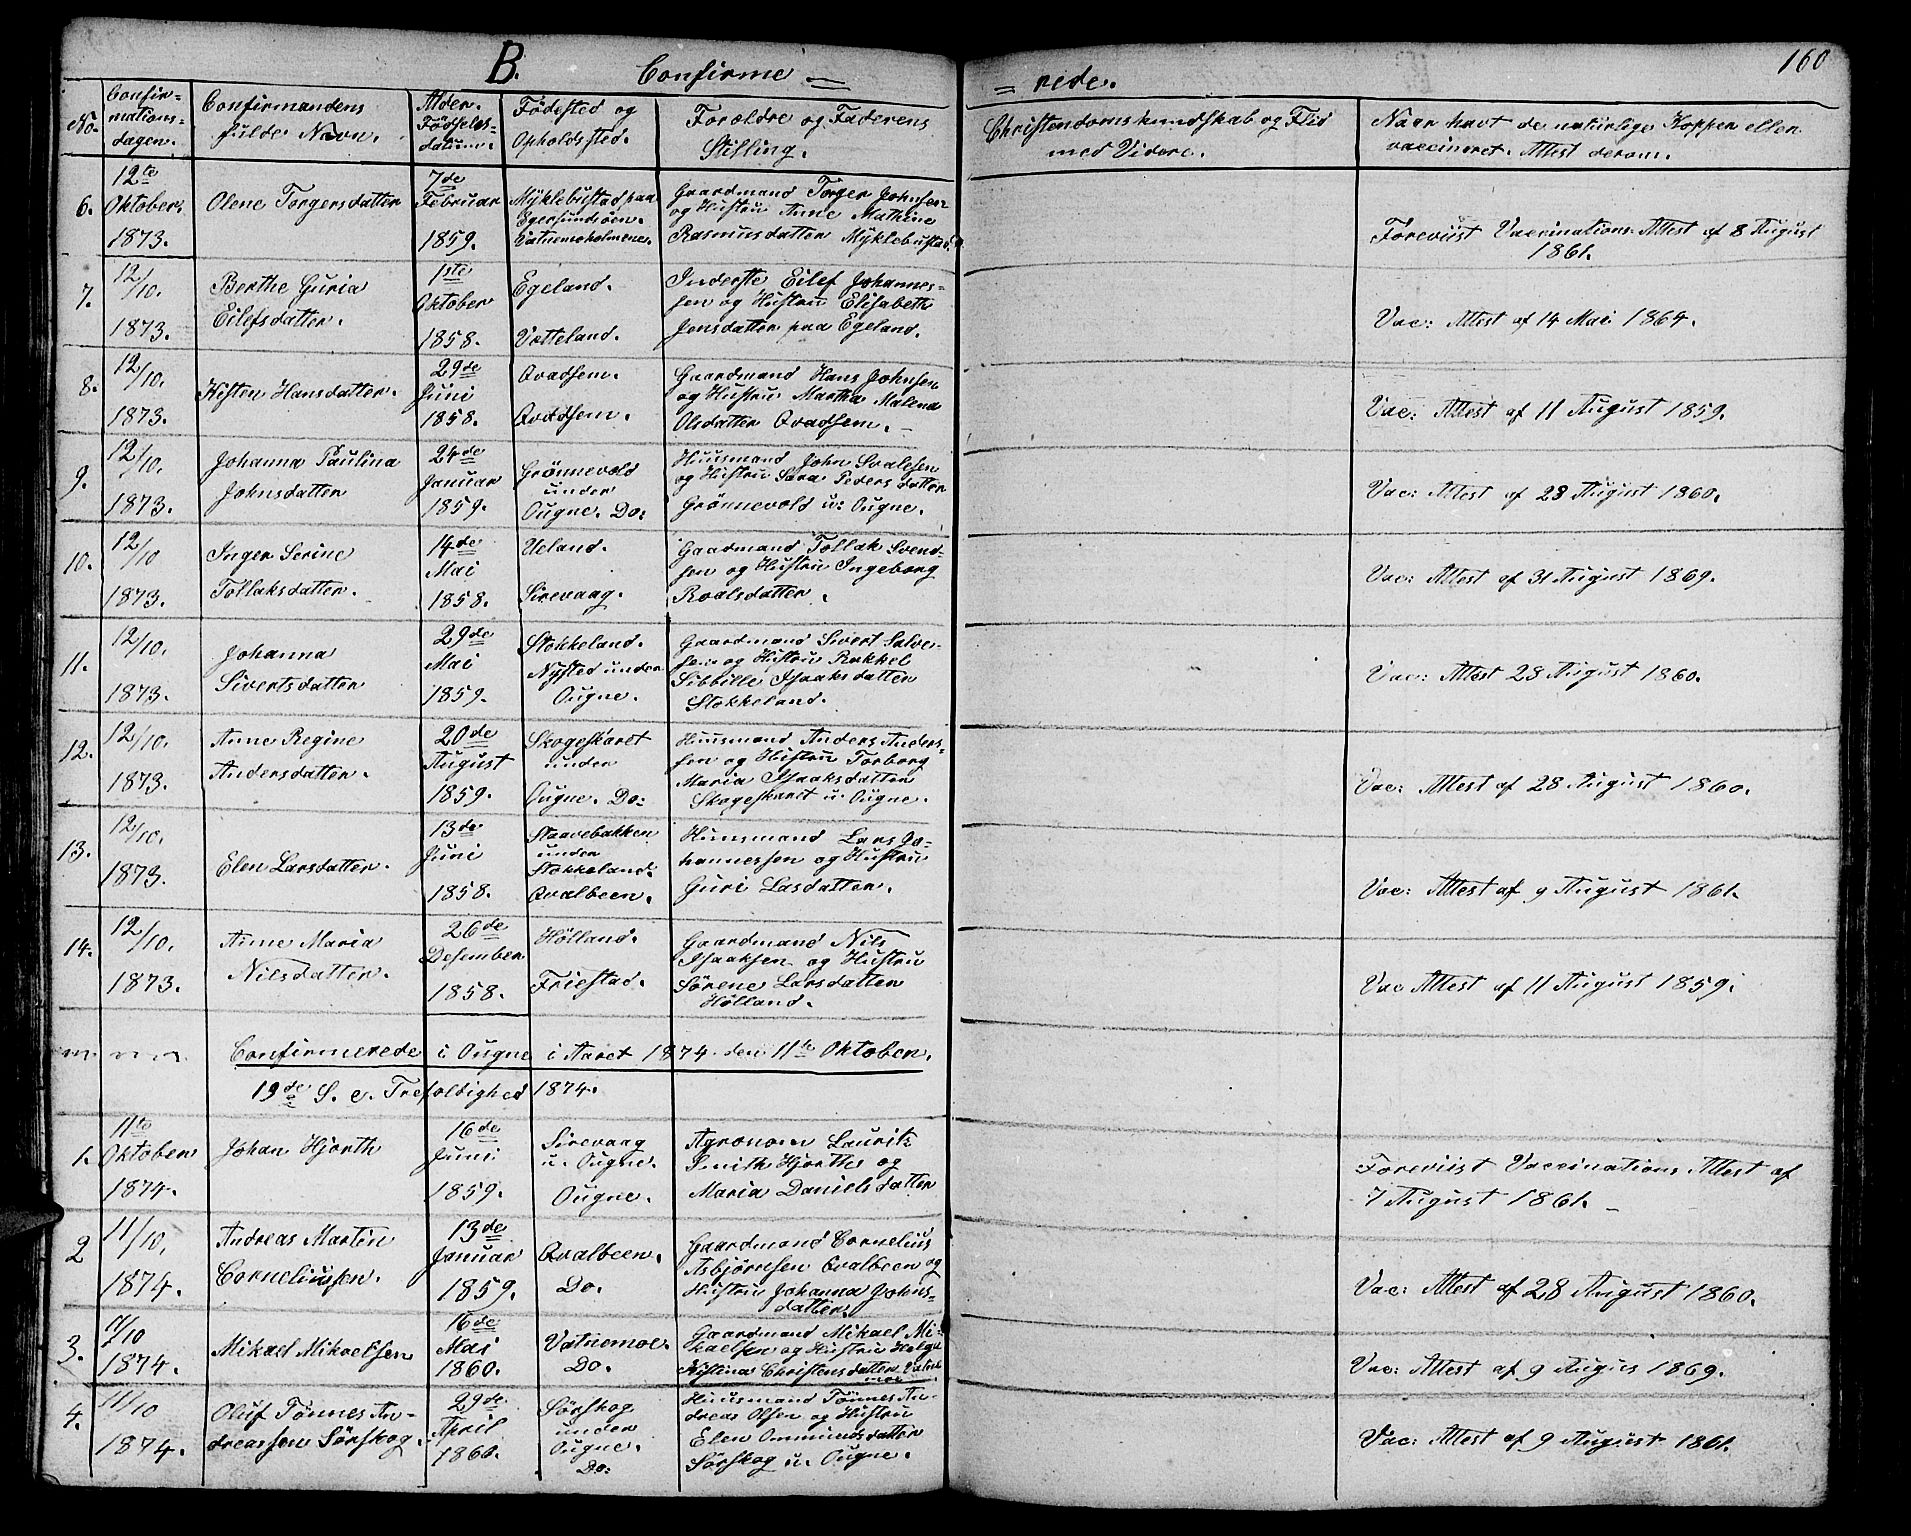 B.
Confirme =
= rede.
160
No.
Confir-
mations-
dagen.
Confirmandens
fulde Navn.
Alder.
Fødsels-
datum.
Fødested og
Opholdssted.
Forældre og Faderens
Stilling.
Christendomskundskab og Flid
med Videre.
Naar havt de natürlige Kopper eller
vaccineret. Attest derom.
6.
12te
Oktober.
1873.
Olene Torgersdatter
7de
Februar
1859.
Myklebustad paa
Egersundsöen.
Vatnemoholmene.
Gaardmand Torger Johnsen
og Hustru Anne Mathine
Rasmusdatter Myklebustad
Foreviist Vaccinations Attest af 8 August
1861.
7.
12/10.
1873.
Berthe Guria
Eilefsdatter.
1ste
Oktober
1858.
Egeland.
Vatteland.
Inderste Eilef Johannes-
sen og Hustru Elisabeth
Jonsdatter paa Egeland.
Vac: Attest af 14 Mai 1864.
8.
12/10.
1873.
Kisten Hansdatter.
29de
Juni
1858.
Qvadsem.
Qvadsem.
Gaardmand Hans Johnsen
og Hustru Martha Malena
Olsdatter Qvadsem.
Vac: Attest af 11 August 1859.
9.
12/10.
1873.
Johanna Paulina
Johnsdatter
24de
Januar
1859.
Grönnevold
under
Ougne. Do:
Huusmand John Svalesen
og Hustru Sara Pedersdatter
Grönnevold u: Ougne.
Vac: Attest af 28 August 1860.
10.
12/10
1873.
Inger Serine
Tollaksdatter.
14de
Mai
1858.
Ueland.
Sirevaag.
Gaardmand Tollak Svend-
sen og Hustru Ingeborg
Roalsdatter.
Vac: Attest af 31 August 1869.
11.
12/10.
1873.
Johanna
Sivertsdatter
29de
Mai
1859.
Stokkeland.
Nysted under
Ougne.
Gaardmand Sivert Salve-
sen og Hustru Rakkel
Sibbille Isaaksdatter
Stokkeland.
Vac: Attest 28 August 1860.
12.
12/10.
1873.
Anne Regine
Andersdatter.
20de
August
1859.
Skogeskaret
under
Ougne. Do:
Huusmand Anders Anders-
sen og Hustru Torborg
Maria Isaaksdatter
Skogeskaret u: Ougne.
Vac: Attest af 28 August 1860.
13.
12/10.
1873.
Elen Larsdatter.
13de
Juni
1858.
Staavebakken
under
Stokkeland.
Qvalbeen.
Huusmand Lars Jo-
hannessen og Hustru
Guri Lasdatter.
Vac: Attest af 9 August 1861.
14.
12/10.
1873.
Anne Maria
Nilsdatter.
26de
Desember
1858.
Hölland.
Friestad.
Gaardmand Nils
Isaaksen og Hustru
Sörene Larsdatter
Hölland.
Vac Attest af 11 August 1859.
Confirmerede i Ougne i Aaret 1874 den 11te Oktober.
19de S. e. Trefoldighed 1874.
1.
11te
Oktober
1874.
Johan Hjorth
16de
Juni
1859.
Sirevaag
u. Ougne.
Ougne.
Agronom Laurits
Smith Hjorthe og
Maria Daniels datter
Foreviist Vaccinations Attest af
7 August 1861.
2
11/10.
1874.
Andreas Martin
Corneliussen.
13de
Januar
1859.
Qvalbeen.
Do.
Gaardmand Cornelius
Asbjörnsen Qvalbeen og
Hustru Johanna Johns-
datter.
Vac: Attest af 28 August 1860.
3.
1874.
Mikael Mikaelsen
16de
Mai
1860.
Vatnemoe
Do.
Gaardmand Mikael Mi-
kaelsen og Hustru Helga
Kistina Christensdatter Vatne
moe
Vac: Attest af 9 Augus 1869.
4.
11/10
1874.
Oluf Tönnes An-
dreassen Sörskog.
29de
April
1860.
Sörskog
under
Ougne.
Do:
Huusmand Tönnes An-
dreas Olsen og Hustru
Elen Ommundsdatter
Sörskog u. Ougne.
Vac: Attest af 9 August 1861.